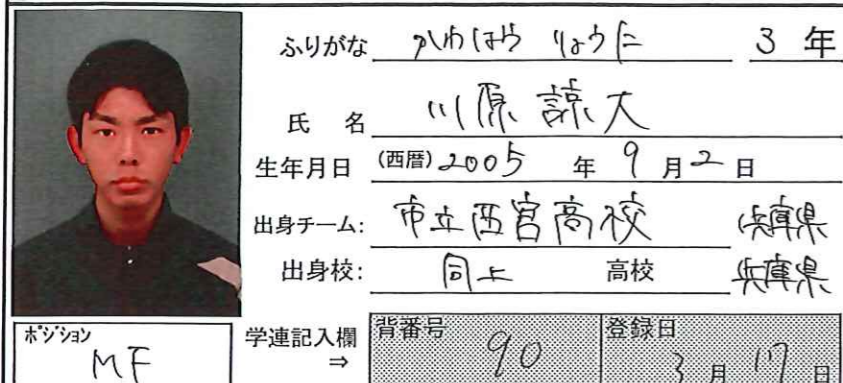 ふりがな かわはら りょうた 3 年
氏 名 川原 諒大
生年月日 (西暦) 2005 年 9 月 2 日
出身チーム: 市立西宮高校 兵庫県
出身校: 同上 高校 兵庫県
ポジション MF
学連記入欄 ⇒ 背番号 90 登録日 3 月 17 日